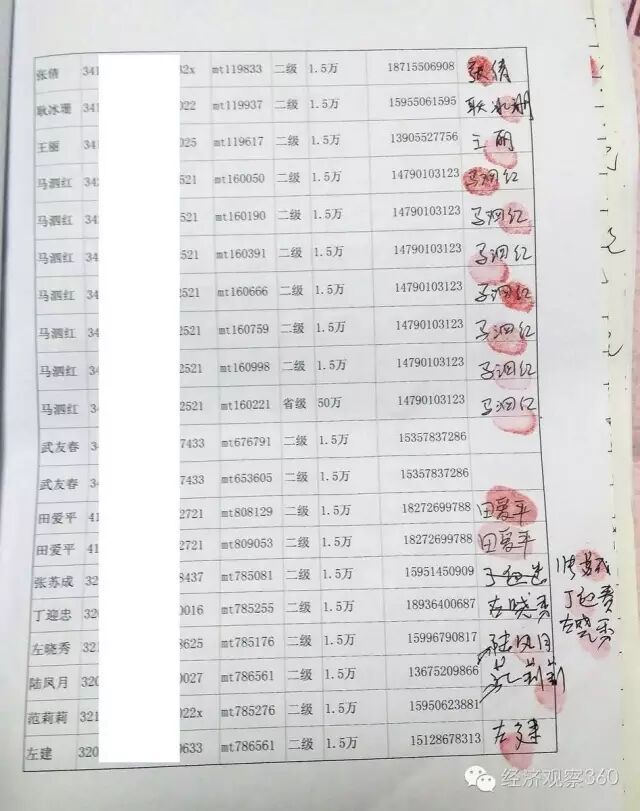 张倩 341 32x mt119833 二级 1.5万 18715506908 张倩
耿冰珊 341 022 mt119937 二级 1.5万 15955061595 耿冰珊
王丽 341 025 mt119617 二级 1.5万 13905527756 王丽
马泗红 342 521 mt160050 二级 1.5万 14790103123 马泗红
马泗红 34 521 mt160190 二级 1.5万 14790103123 马泗红
马泗红 34 521 mt160391 二级 1.5万 14790103123 马泗红
马泗红 34 2521 mt160666 二级 1.5万 14790103123 马泗红
马泗红 34 2521 mt160759 二级 1.5万 14790103123 马泗红
马泗红 34 2521 mt160998 二级 1.5万 14790103123 马泗红
马泗红 34 2521 mt160221 省级 50万 14790103123 马泗红
武友春 34 7433 mt676791 二级 1.5万 15357837286
武友春 34 7433 mt653605 二级 1.5万 15357837286
田爱平 41 2721 mt808129 二级 1.5万 18272699788 田爱平
田爱平 41 2721 mt809053 二级 1.5万 18272699788 田爱平
张苏成 32 8437 mt785081 二级 1.5万 15951450909 张苏成
丁迎忠 320 0016 mt785255 二级 1.5万 18936400687 左晓秀
左晓秀 321 8625 mt785176 二级 1.5万 15996790817 陆凤月 左晓秀
陆凤月 320 0027 mt786561 二级 1.5万 13675209866 范莉莉
范莉莉 321 022x mt785276 二级 1.5万 15950623881
左建 320 0633 mt786561 二级 1.5万 15128678313 左建
经济观察360